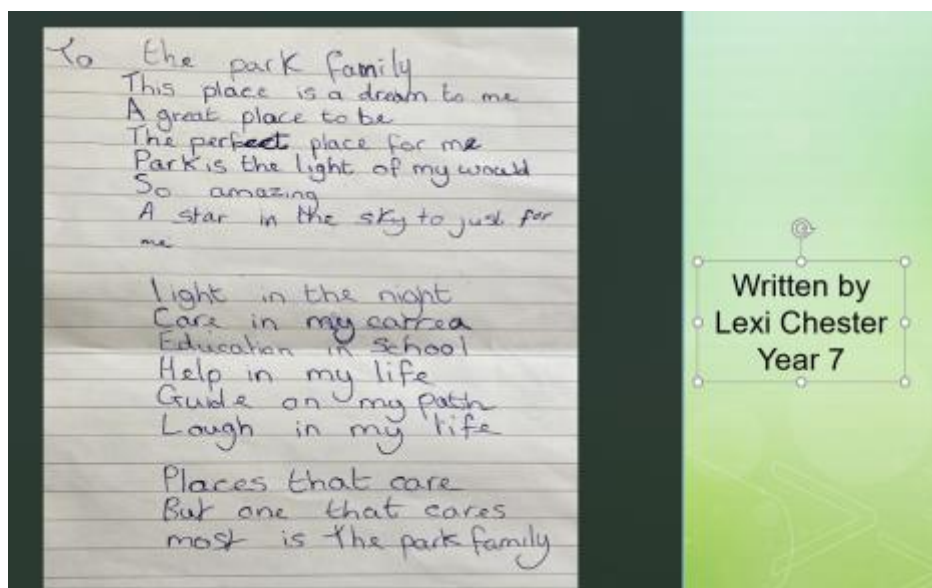 To the park family
This place is a dream to me
A great place to be
The perfect place for me
Park is the light of my would
So amazing
A star in the sky to just for
me
Light in the night
Care in my carrea
Education in school
Help in my life
Guide on my path
Laugh in my life
Places that care
But one that cares
most is the park family
Written by
Lexi Chester
Year 7